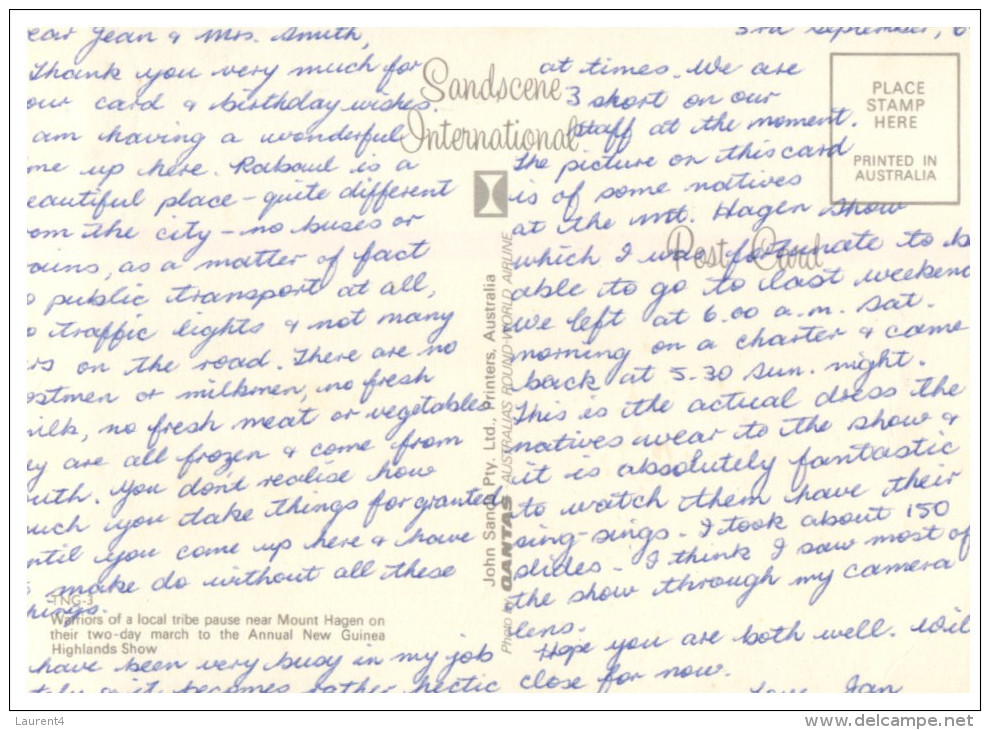 ear Jean & Mrs. Smith,
3rd September,
Thank you very much for
our card & birthday wishes.
am having a wonderful
me up here. Rabaul is a
eautiful place - quite different
om the city - no buses or
ains, as a matter of fact
o public transport at all,
o traffic lights & not many
rs on the road. There are no
ostmen or milkmen, no fresh
ilk, no fresh meat or vegetables
ey are all frozen & come from
outh. You dont realise how
uch you take things for granted
ntil you come up here & have
make do without all these
hings.
have been very busy in my job
it becomes rather hectic
at times. We are
3 short on our
staff at the moment.
The picture on this card
is of some natives
at the Mt. Hagen Show
which I was fortunate to b
able to go to last weekend
We left at 6.00 a.m. Sat.
morning on a charter & came
back at 5-30 Sun. night.
This is the actual dress the
natives wear to the show &
it is absolutely fantastic
to watch them have their
sing-sings. I took about 150
slides - I think I saw most of
the show through my camera
lens.
Hope you are both well. Wil
close for now.
Love, Jan
Sandscene
International
Post Card
PLACE
STAMP
HERE
PRINTED IN
AUSTRALIA
John Sands Pty. Ltd., Printers, Australia
Photo by QANTAS AUSTRALIA'S ROUND-WORLD AIRLINE
TNG-3
Warriors of a local tribe pause near Mount Hagen on
their two-day march to the Annual New Guinea
Highlands Show
Laurent4
www.delcampe.net